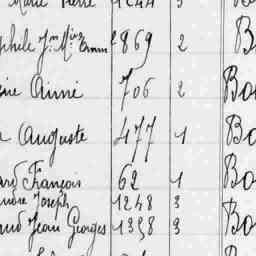 Marie Pierre 1244 3
phile Jn Mie 2869 2 B
Aimé 706 2 Bo
Auguste 477 1 Bo
ard François 62 1 Bo
Joseph 1248 3
aud Jean Georges 1398 3 Bo